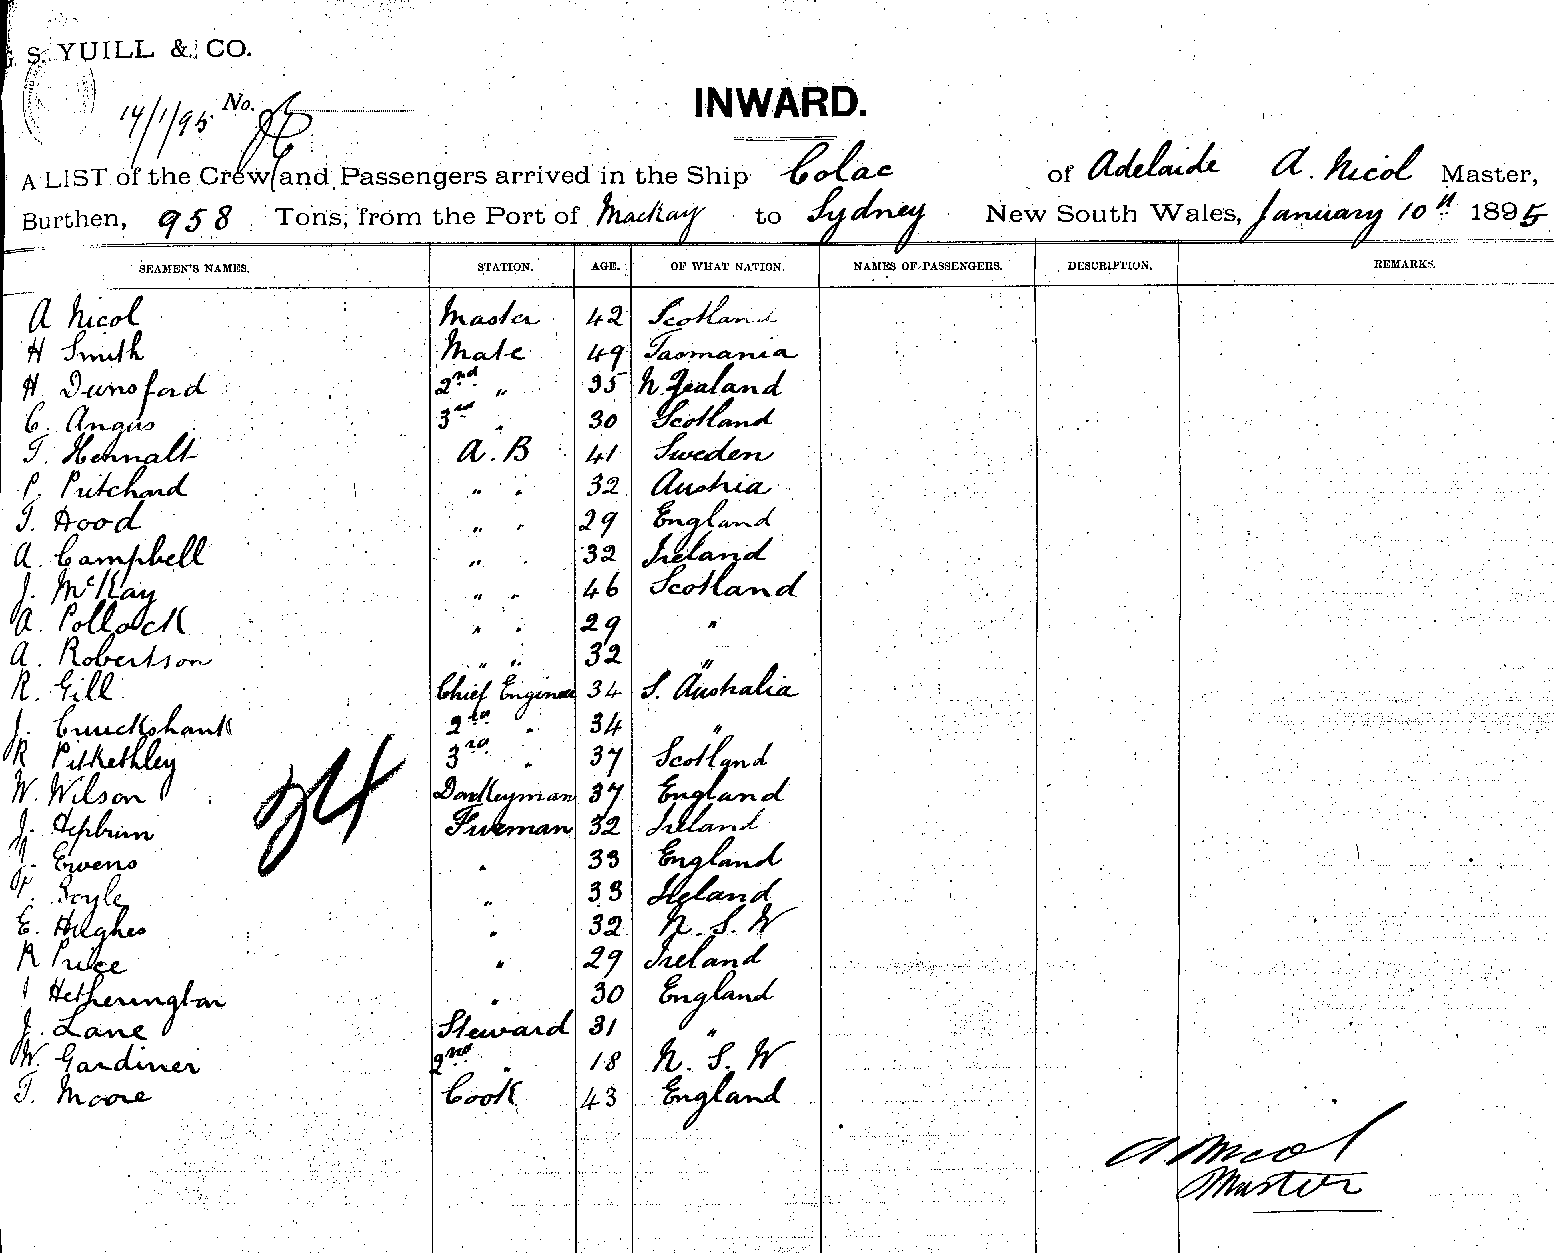 S. YUILL & CO.
14/1/95 No.
INWARD.
A LIST of the Crew and Passengers arrived in the Ship Colac of Adelaide A. Nicol Master,
Burthen, 958 Tons, from the Port of Mackay to Sydney New South Wales, January 10th 1895
SEAMEN'S NAMES. STATION. AGE. OF WHAT NATION. NAMES OF PASSENGERS. DESCRIPTION. REMARKS.
A Nicol Master 42 Scotland
H Smith Mate 49 Tasmania
H Dunsford 2nd " 35 N. Zealand
C. Angus 3rd " 30 Scotland
T. Hennalt A.B 41 Sweden
P. Pritchard " " 32 Austria
T. Hood " " 29 England
A. Campbell " " 32 Ireland
J. McKay " " 46 Scotland
A. Pollock " " 29 "
A. Robertson " " 32 "
R. Gill Chief Engineer 34 S. Australia
J. Cruickshank 2nd " 34 "
R Pitkethley 3rd " 37 Scotland
W. Wilson Donkeyman 37 England
J. Hepburn Fireman 32 Ireland
J. Ewens " 33 England
Boyle " 33 Ireland
E. Hughes " 32 N. S. W
R Price " 29 Ireland
Hetherington " 30 England
J. Lane Steward 31 "
W. Gardiner 2nd " 18 N. S. W
T. Moore Cook 43 England
24
A Nicol
Master